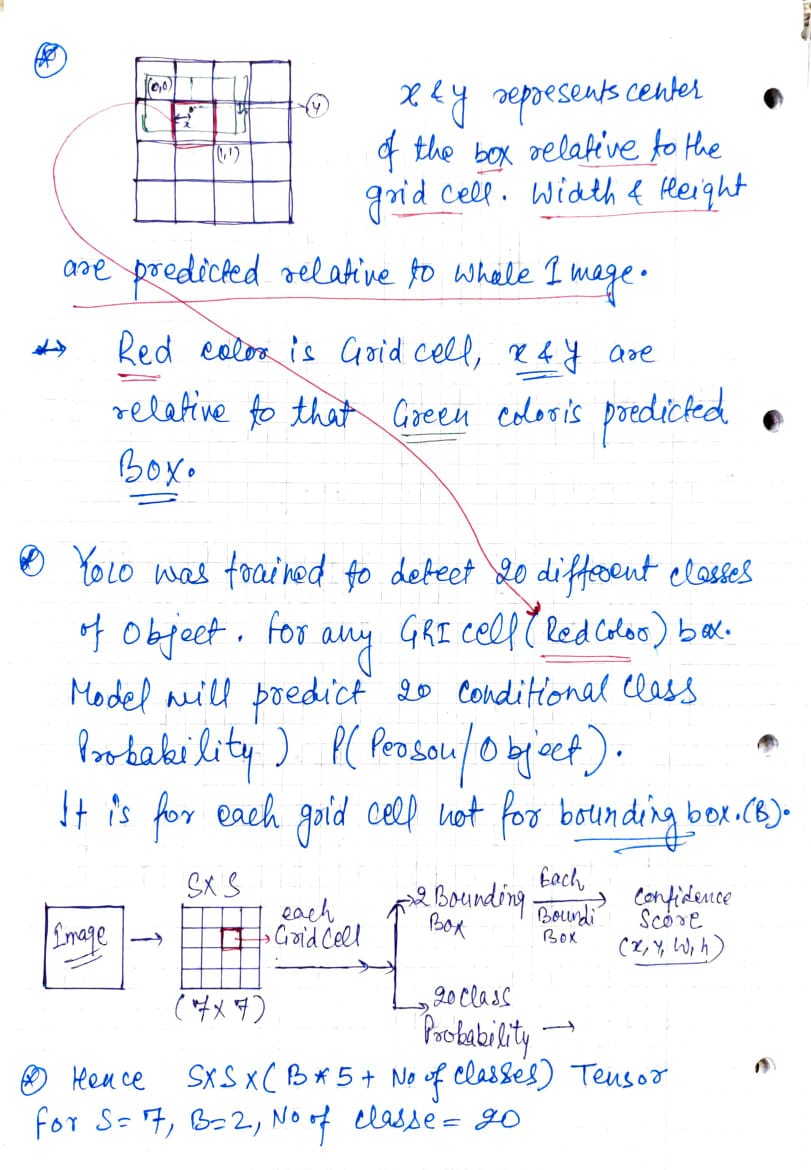 (0,0)
x
y
(1,1)
x & y represents center
of the box relative to the
grid cell. Width & Height
are predicted relative to whole Image.
Red color is Grid cell, x & y are
relative to that Green color is predicted
Box.
YOLO was trained to detect 20 different classes
of Object. For any GRI cell (Red Color) box.
Model will predict 20 conditional class
Probability) P(Person/Object).
It is for each grid cell not for bounding box.(B).
Image
SXS
(7x7)
each
Grid Cell
2 Bounding
Box
Each
Boundi
Box
Confidence
Score
(x, y, w, h)
20 class
Probability
Hence SXSX(B*5+ No of classes) Tensor
for S=7, B=2, No of classe = 20